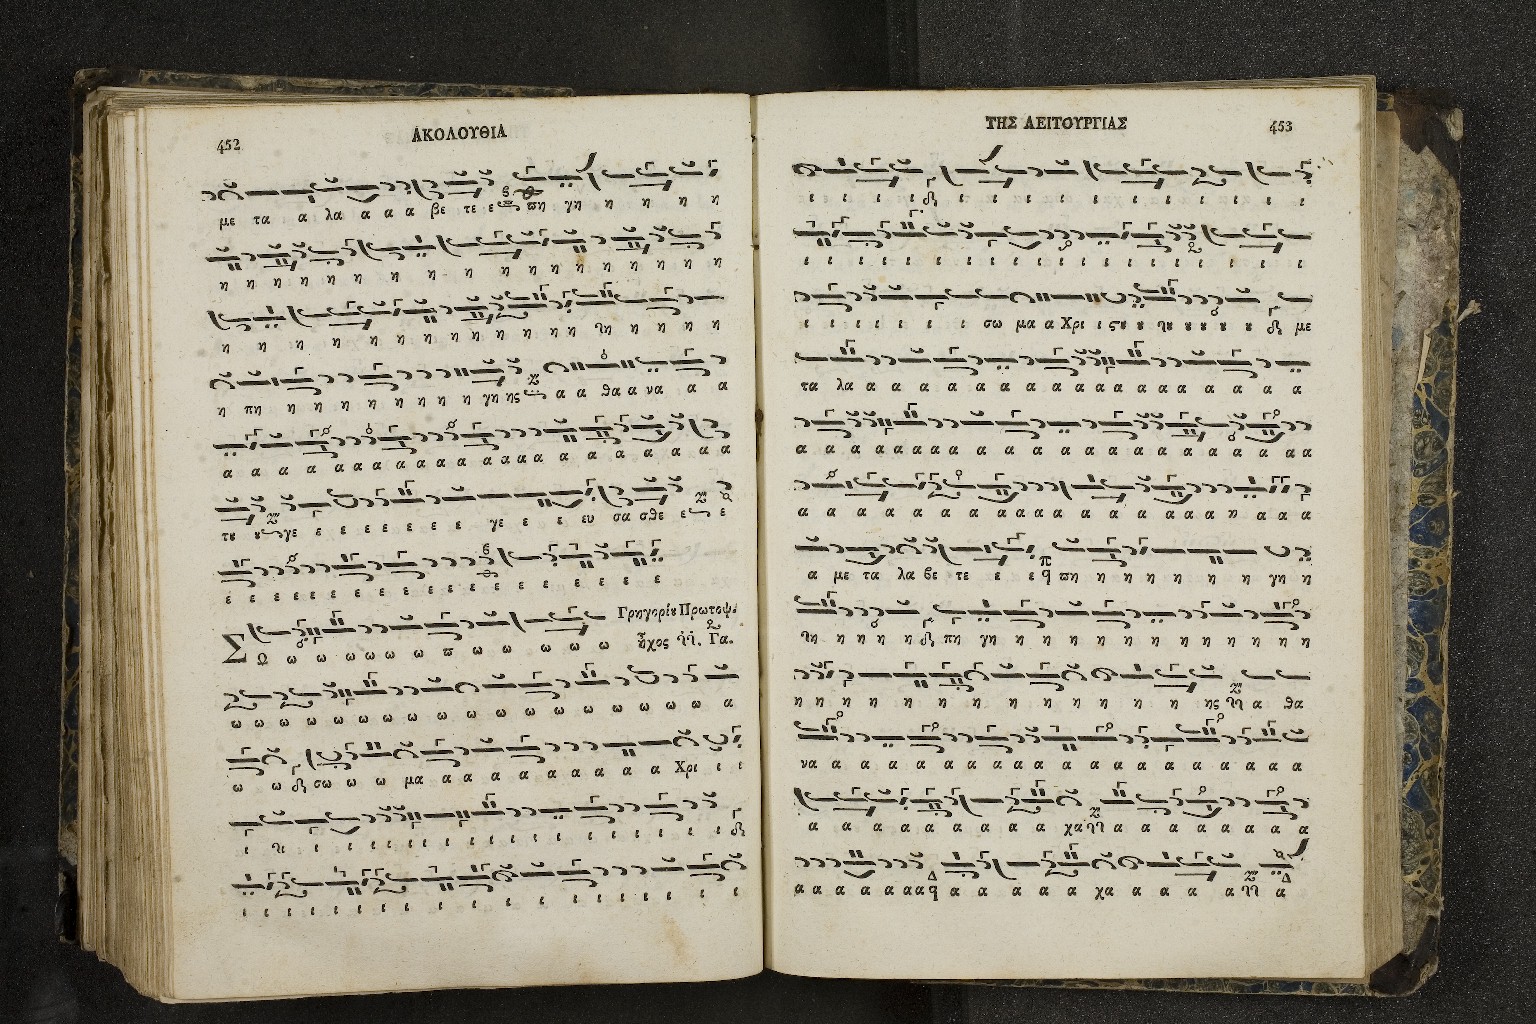 452
ΑΚΟΛΟΥΘΙΑ
με τα α λα α α α βε τε ε πη γη η η η η
η η η η η η η η η η η η η η η
η η η η η η η η η η η η η η η
η πη η η η η η η η η γη ης α α θα α να α α
α α α α α α α α α α α α α α α α α α α α α
τȣ ȣ γε ε ε ε ε ε ε ε ε γε ε ε ευ σα σθε ε ε
ε ε ε ε ε ε ε ε ε ε ε ε ε ε ε ε ε ε
Γρηγορίȣ Πρωτοψ.
Σ Ω ω ω ω ω ω ω ω ω ω ω ω ω ω ἦχος Γα.
ω ω ω ω ω ω ω ω ω ω ω ω ω ω ω ω ω ω ω α
ω ω σω ω ω μα α α α α α α α α α Χρι ι ι
ι ι ι ι ι ι ι ι ι ι ι ι ι ι ι ι ι
ι ι ι ι ι ι ι ι ι ι ι ι ι ι ι ι ι ι
ΤΗΣ ΛΕΙΤΟΥΡΓΙΑΣ
453
ι ι ι ι ι ι ι ι ι ι ι ι ι ι
ι ι ι ι ι ι ι ι ι ι ι ι ι ι ι ι ι ι ι ι
ι ι ι ι ι ι ι σω μα α Χρι ι ςȣ ȣ ȣ ȣ ȣ ȣ ȣ με
τα λα α α α α α α α α α α α α α α α α α
α α α α α α α α α α α α α α α α α α α α α
α α α α α α α α α α α α α α α α α α α α
α με τα λα βε τε ε ε πη η η η η η η γη η
η η η η η πη γη η η η η η η η η η η η η
η η η η η η η η η η η η η η ης α θα
να α α α α α α α α α α α α α α α α α
α α α α α α α α α χα α α α α α α α α
α α α α α α α α α α α α χα α α α α α